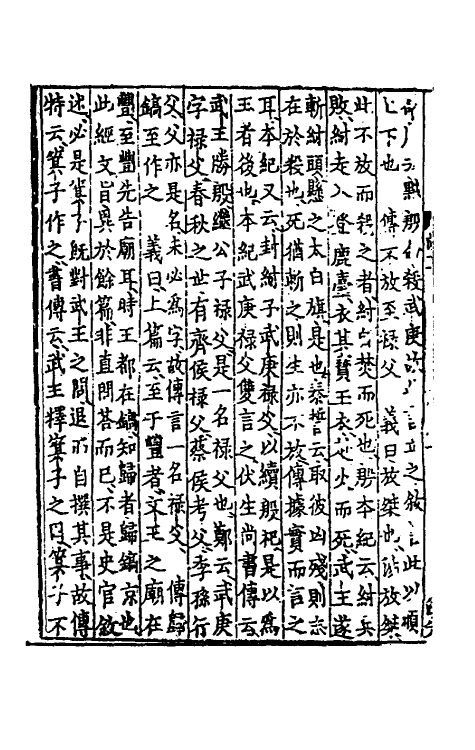 下也　傳不放至祿父　義曰放桀也湯放桀
此不放而殺之者紂自焚而死也殷本紀云紂兵
敗紂走入登鹿臺衣其寶玉衣赴火而死武王遂
斬紂頭懸之太白旗是也泰誓云取彼凶殘則志
在於殺也死猶斬之則生亦不放傳據實而言之
耳本紀又云封紂子武庚祿父以續殷祀是以為
王者後也本紀武庚祿父雙言之伏生尚書傳云
武王勝殷繼公子祿父是一名祿父也鄭云武庚
字祿父春秋之世有齊侯祿父蔡侯考父季孫行
父父亦是名未必為字故傳言一名祿父　傳歸
鎬至作之　義曰上篇云至于豐者文王之廟在
豐至豐先告廟耳時王都在鎬知歸者歸鎬京也
此經文旨異於餘篇非直問荅而已不是史官敘
述必是箕子既對武王之問退而自撰其事故傳
特云箕子作之書傳云武王釋箕子之囚箕子不